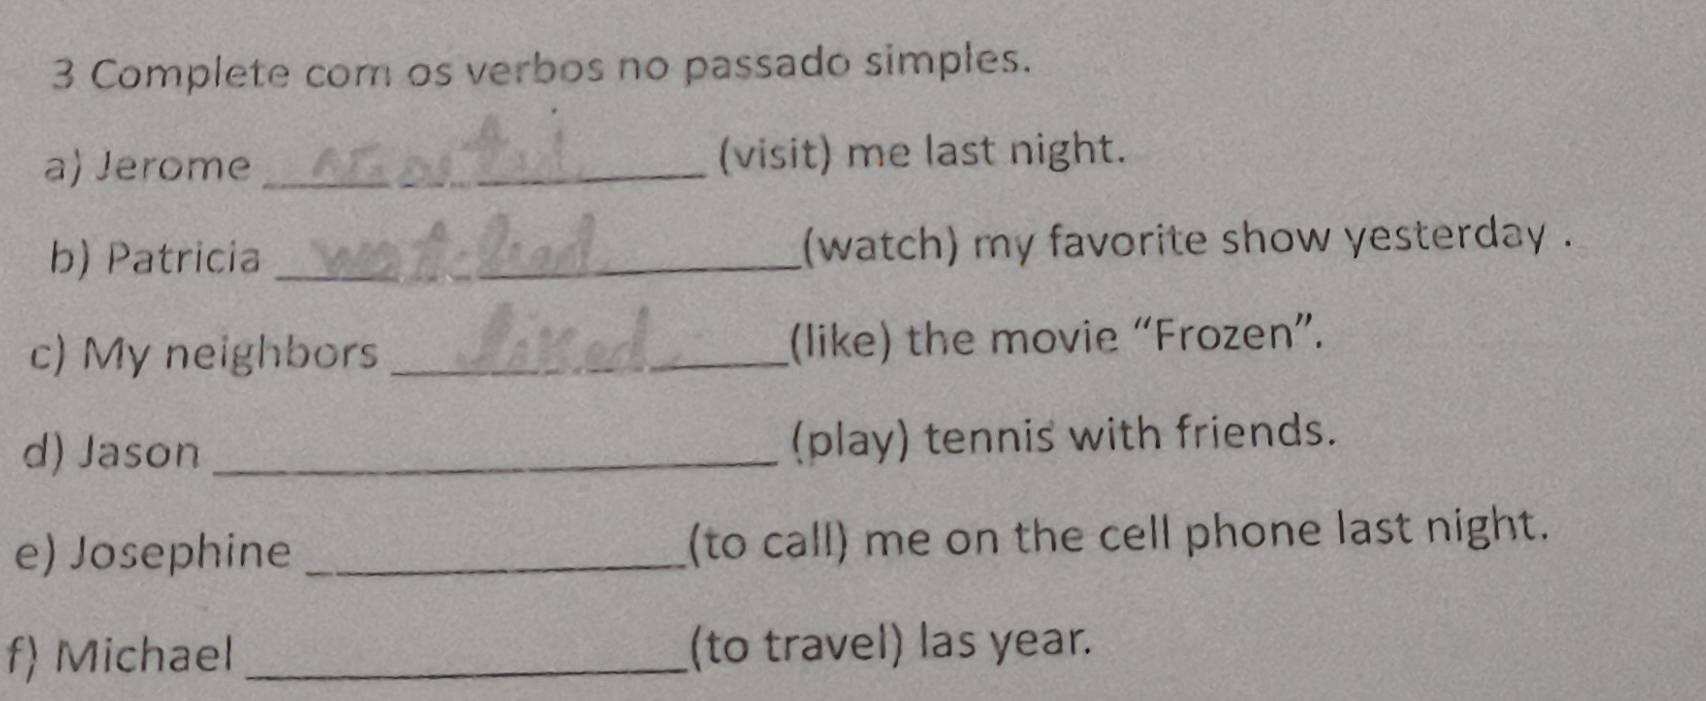 3 Complete com os verbos no passado simples.
a) Jerome ____________ (visit) me last night.
b) Patricia watched (watch) my favorite show yesterday .
c) My neighbors liked (like) the movie “Frozen”.
d) Jason ____________ (play) tennis with friends.
e) Josephine ____________ (to call) me on the cell phone last night.
f) Michael ____________ (to travel) las year.